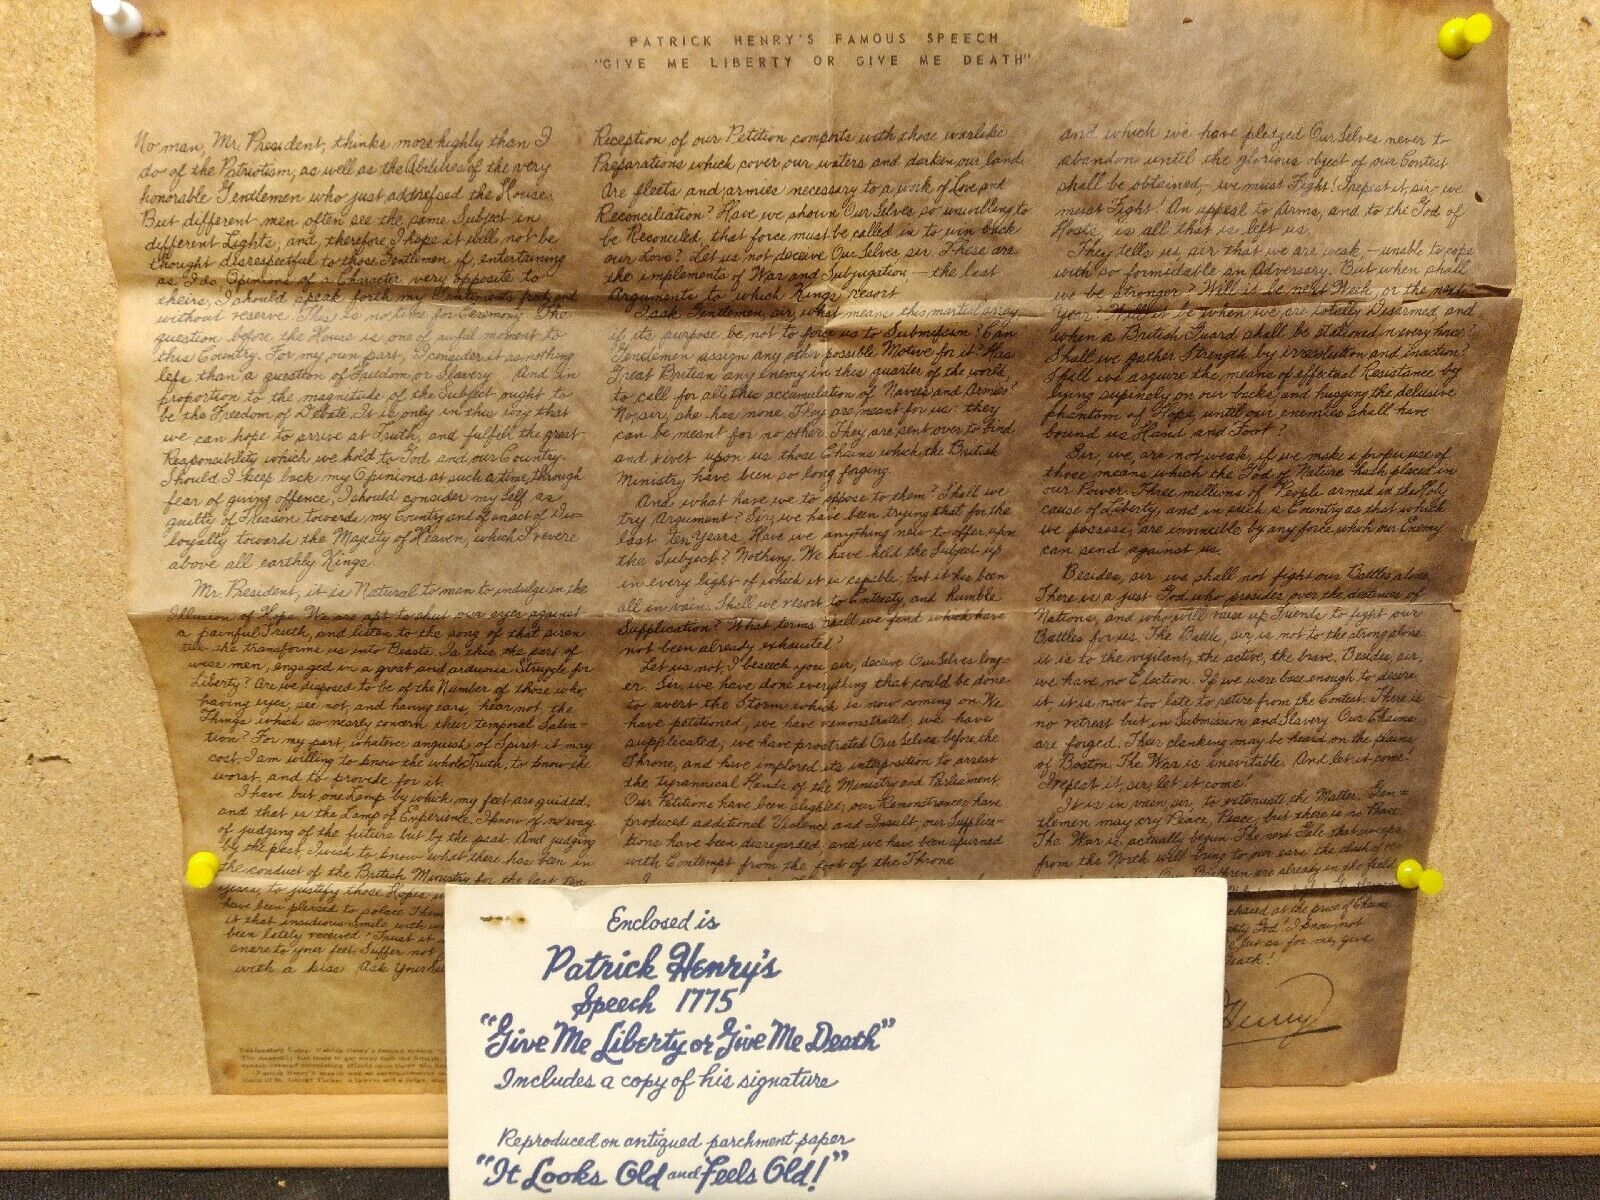 PATRICK HENRY'S FAMOUS SPEECH
"GIVE ME LIBERTY OR GIVE ME DEATH"
No man, Mr. President, thinks more highly than I
do of the Patriotism, as well as the Abilities of the very
honorable Gentlemen who just addressed the House.
But different men often see the same Subject in
different Lights, and, therefore, I hope it will not be
thought disrespectful to those Gentlemen if, entertaining
as I do, Opinions of a Character very opposite to
theirs, I should speak forth my Sentiments freely and
without reserve. This is no time for Ceremony. The
question before the House is one of awful moment to
this Country. For my own part, I consider it as nothing
less than a question of Freedom or Slavery. And in
proportion to the magnitude of the Subject ought to
be the Freedom of Debate. It is only in this way that
we can hope to arrive at Truth, and fulfill the great
Responsibility which we hold to God and our Country.
Should I keep back my Opinions at such a time, through
fear of giving offence, I should consider my Self as
guilty of Treason towards my Country and of an act of Dis=
loyalty towards the Majesty of Heaven, which I revere
above all earthly Kings.
Mr. President, it is Natural to man to indulge in the
Illusion of Hope. We are apt to shut our eyes against
a painful Truth, and listen to the song of that siren
till she transforms us into Beasts. Is this the part of
wise men, engaged in a great and arduous Struggle for
Liberty? Are we disposed to be of the Number of those who
having eyes, see not, and having ears, hear not, the
Things which so nearly concern their temporal Salva-
tion? For my part, whatever anguish of Spirit it may
cost, I am willing to know the whole Truth, to know the
worst, and to provide for it.
I have but one Lamp by which my feet are guided,
and that is the Lamp of Experience. I know of no way
of judging of the future but by the past. And judging
by the past, I wish to know what there has been in
the conduct of the British Ministry for the last ten
years, to justify those Hopes
have been pleased to solace Them
it that insidious Smile with
been lately received? Trust it
snare to your feet. Suffer not
with a kiss. Ask Your
Reception of our Petition comports with those warlike
Preparations which cover our waters and darken our land.
Are fleets and armies necessary to a work of Love and
Reconciliation? Have we shown Our Selves so unwilling to
be Reconciled that force must be called in to win back
our Love? Let us not deceive Our Selves sir. These are
the implements of War and Subjugation — the last
Arguments to which Kings resort
I ask Gentlemen, sir, what means this martial array
if its purpose be not to force us to Submission? Can
Gentlemen assign any other possible Motive for it? Has
Great Britian any enemy in this quarter of the world,
to call for all this accumulation of Navies and Armies?
No, sir, she has none. They are meant for us: they
can be meant for no other. They are sent over to bind
and rivet upon us those Chains which the British
Ministry have been so long forging.
And what have we to oppose to them? Shall we
try Argument? Sir, we have been trying that for the
last ten Years. Have we anything new to offer upon
the Subject? Nothing. We have held the Subject up
in every light of which it is capable; but it has been
all in vain. Shall we resort to Entreaty, and humble
Supplication? What terms shall we find which have
not been already exhausted?
Let us not, I beseech you sir, deceive Our Selves long-
er. Sir, we have done everything that could be done
to avert the Storm which is now coming on. We
have petitioned; we have remonstrated; we have
supplicated; we have prostrated Our Selves before the
Throne, and have implored its interposition to arrest
the tyrannical Hands of the Ministry and Parliament.
Our Petitions have been slighted; our Remonstrances have
produced additional Violence and Insult; our Supplica-
tions have been disregarded; and we have been spurned
with Contempt from the foot of the Throne
and which we have pledged Our Selves never to
abandon until the glorious object of our Contest
shall be obtained, - we must Fight! I repeat it, sir - we
must Fight! An appeal to Arms, and to the God of
Hosts, is all that is left us.
They tell us sir that we are weak, - unable to cope
with so formidable an Adversary. But when shall
we be stronger? Will it be next Week, or the next
Year? Will it be when we are totally Disarmed, and
when a British Guard shall be stationed in every house?
Shall we gather Strength by irresolution and inaction?
Shall we acquire the means of effectual Resistance by
lying supinely on our backs and hugging the delusive
phantom of Hope, until our enemies shall have
bound us Hand and Foot?
Sir, we are not weak, if we make a proper use of
those means which the God of Nature hath placed in
our Power. Three millions of People armed in the Holy
cause of Liberty, and in such a Country as that which
we possess, are invincible by any force which our Enemy
can send against us.
Besides, sir we shall not fight our Battles alone.
There is a just God who presides over the destinies of
Nations, and who will raise up Friends to fight our
Battles for us. The Battle, sir, is not to the strong alone
it is to the vigilant, the active, the brave. Besides, sir,
we have no Election. If we were base enough to desire
it it is now too late to retire from the Contest. There is
no retreat but in Submission and Slavery. Our Chains
are forged. Their clanking may be heard on the plains
of Boston. The War is inevitable. And let it come!
I repeat it, sir, let it come!
It is in vain, sir, to extenuate the Matter. Gen=
tlemen may cry Peace, Peace, but there is no Peace
The War is actually begun. The next Gale that sweeps
from the North will bring to our ears the clash of
Brethren are already in the field
at the price of Chains
God! I know not
but as for me, give
Death!
Henry
Enclosed is
Patrick Henry's
Speech 1775
"Give Me Liberty or Give Me Death"
Includes a copy of his signature
Reproduced on antiqued parchment paper
"It Looks Old and Feels Old!"